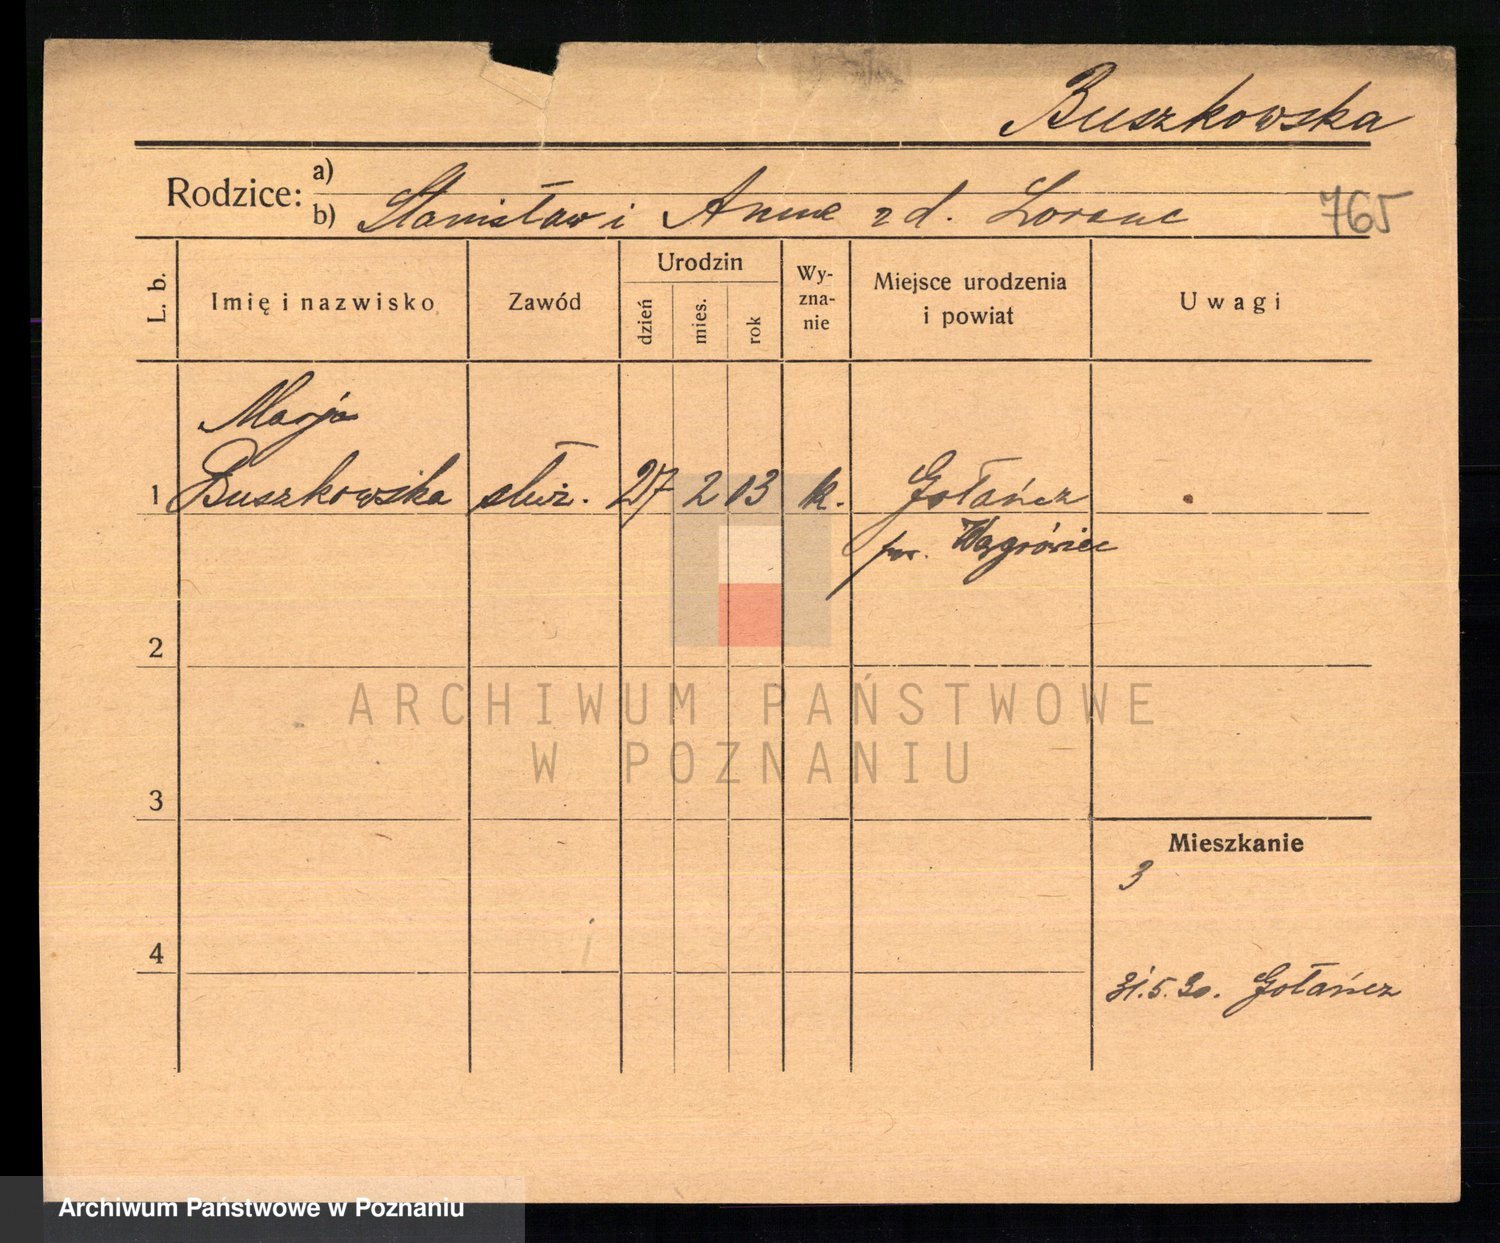 Buszkowska
Rodzice: a)
b) Stanisław i Anna zd. Lorenc
765
L. b.
Imię i nazwisko
Zawód
Urodzin
dzień
mies.
rok
Wy-
zna-
nie
Miejsce urodzenia
i powiat
Uwagi
Marja
1 Buszkowska służ. 27 2 03 k. Gołańcz
pow. Wągrówiec
2
3
4
Mieszkanie
3
31.5.30. Gołańcz
ARCHIWUM PAŃSTWOWE
W POZNANIU
Archiwum Państwowe w Poznaniu